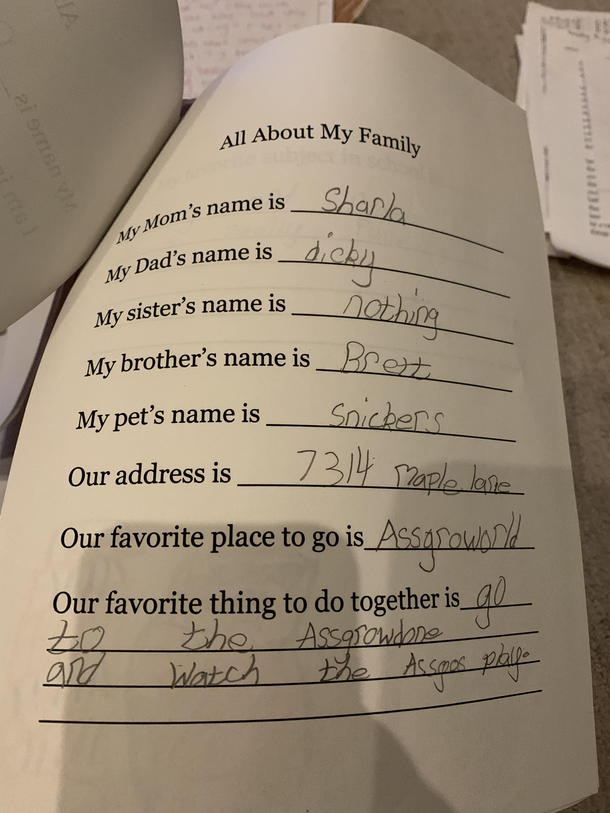 All About My Family
My Mom's name is Sharla
My Dad's name is dicky
My sister's name is nothing
My brother's name is Brett
My pet's name is Snickers
Our address is 7314 Maple lane
Our favorite place to go is Assgroworld
Our favorite thing to do together is go
to the Assgrowdone
and Watch the Assgos play.